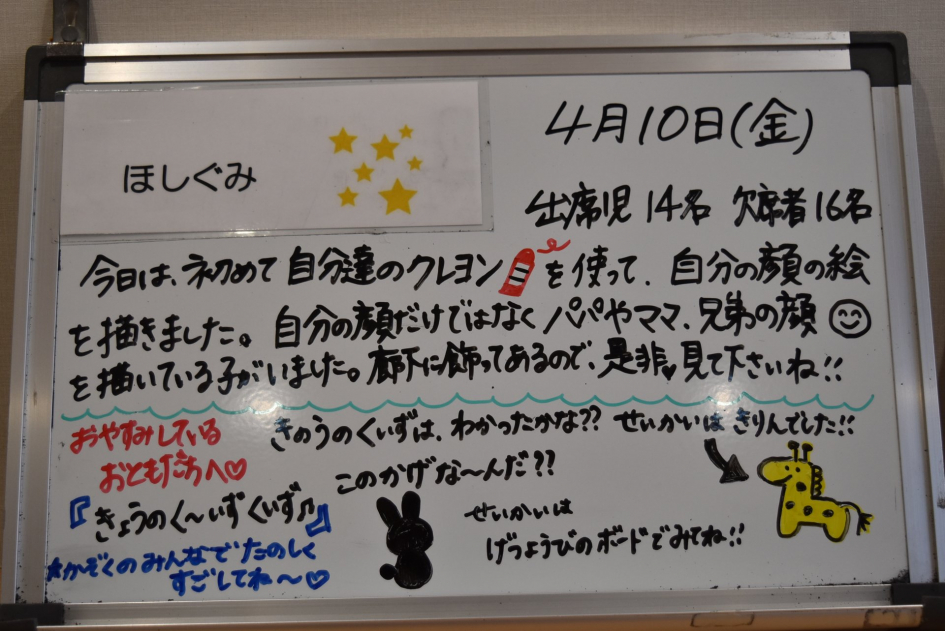 ほしぐみ
4月10日(金)
出席児 14名 欠席者 16名
今日は、初めて 自分達のクレヨンを使って、自分の顔の絵
を描きました。自分の顔だけではなく パパやママ、兄弟の顔
を描いている子がいました。廊下に飾ってあるので、是非、見て下さいね!!
おやすみしている
おともだちへ♡
きのうのくいずは、わかったかな?? せいかいは きりんでした!!
このかげな〜んだ??
『きょうのく〜いずくいず♪』
せいかいは
げつようびのボードでみてね!!
*かぞくのみんなでたのしく
すごしてね〜♡